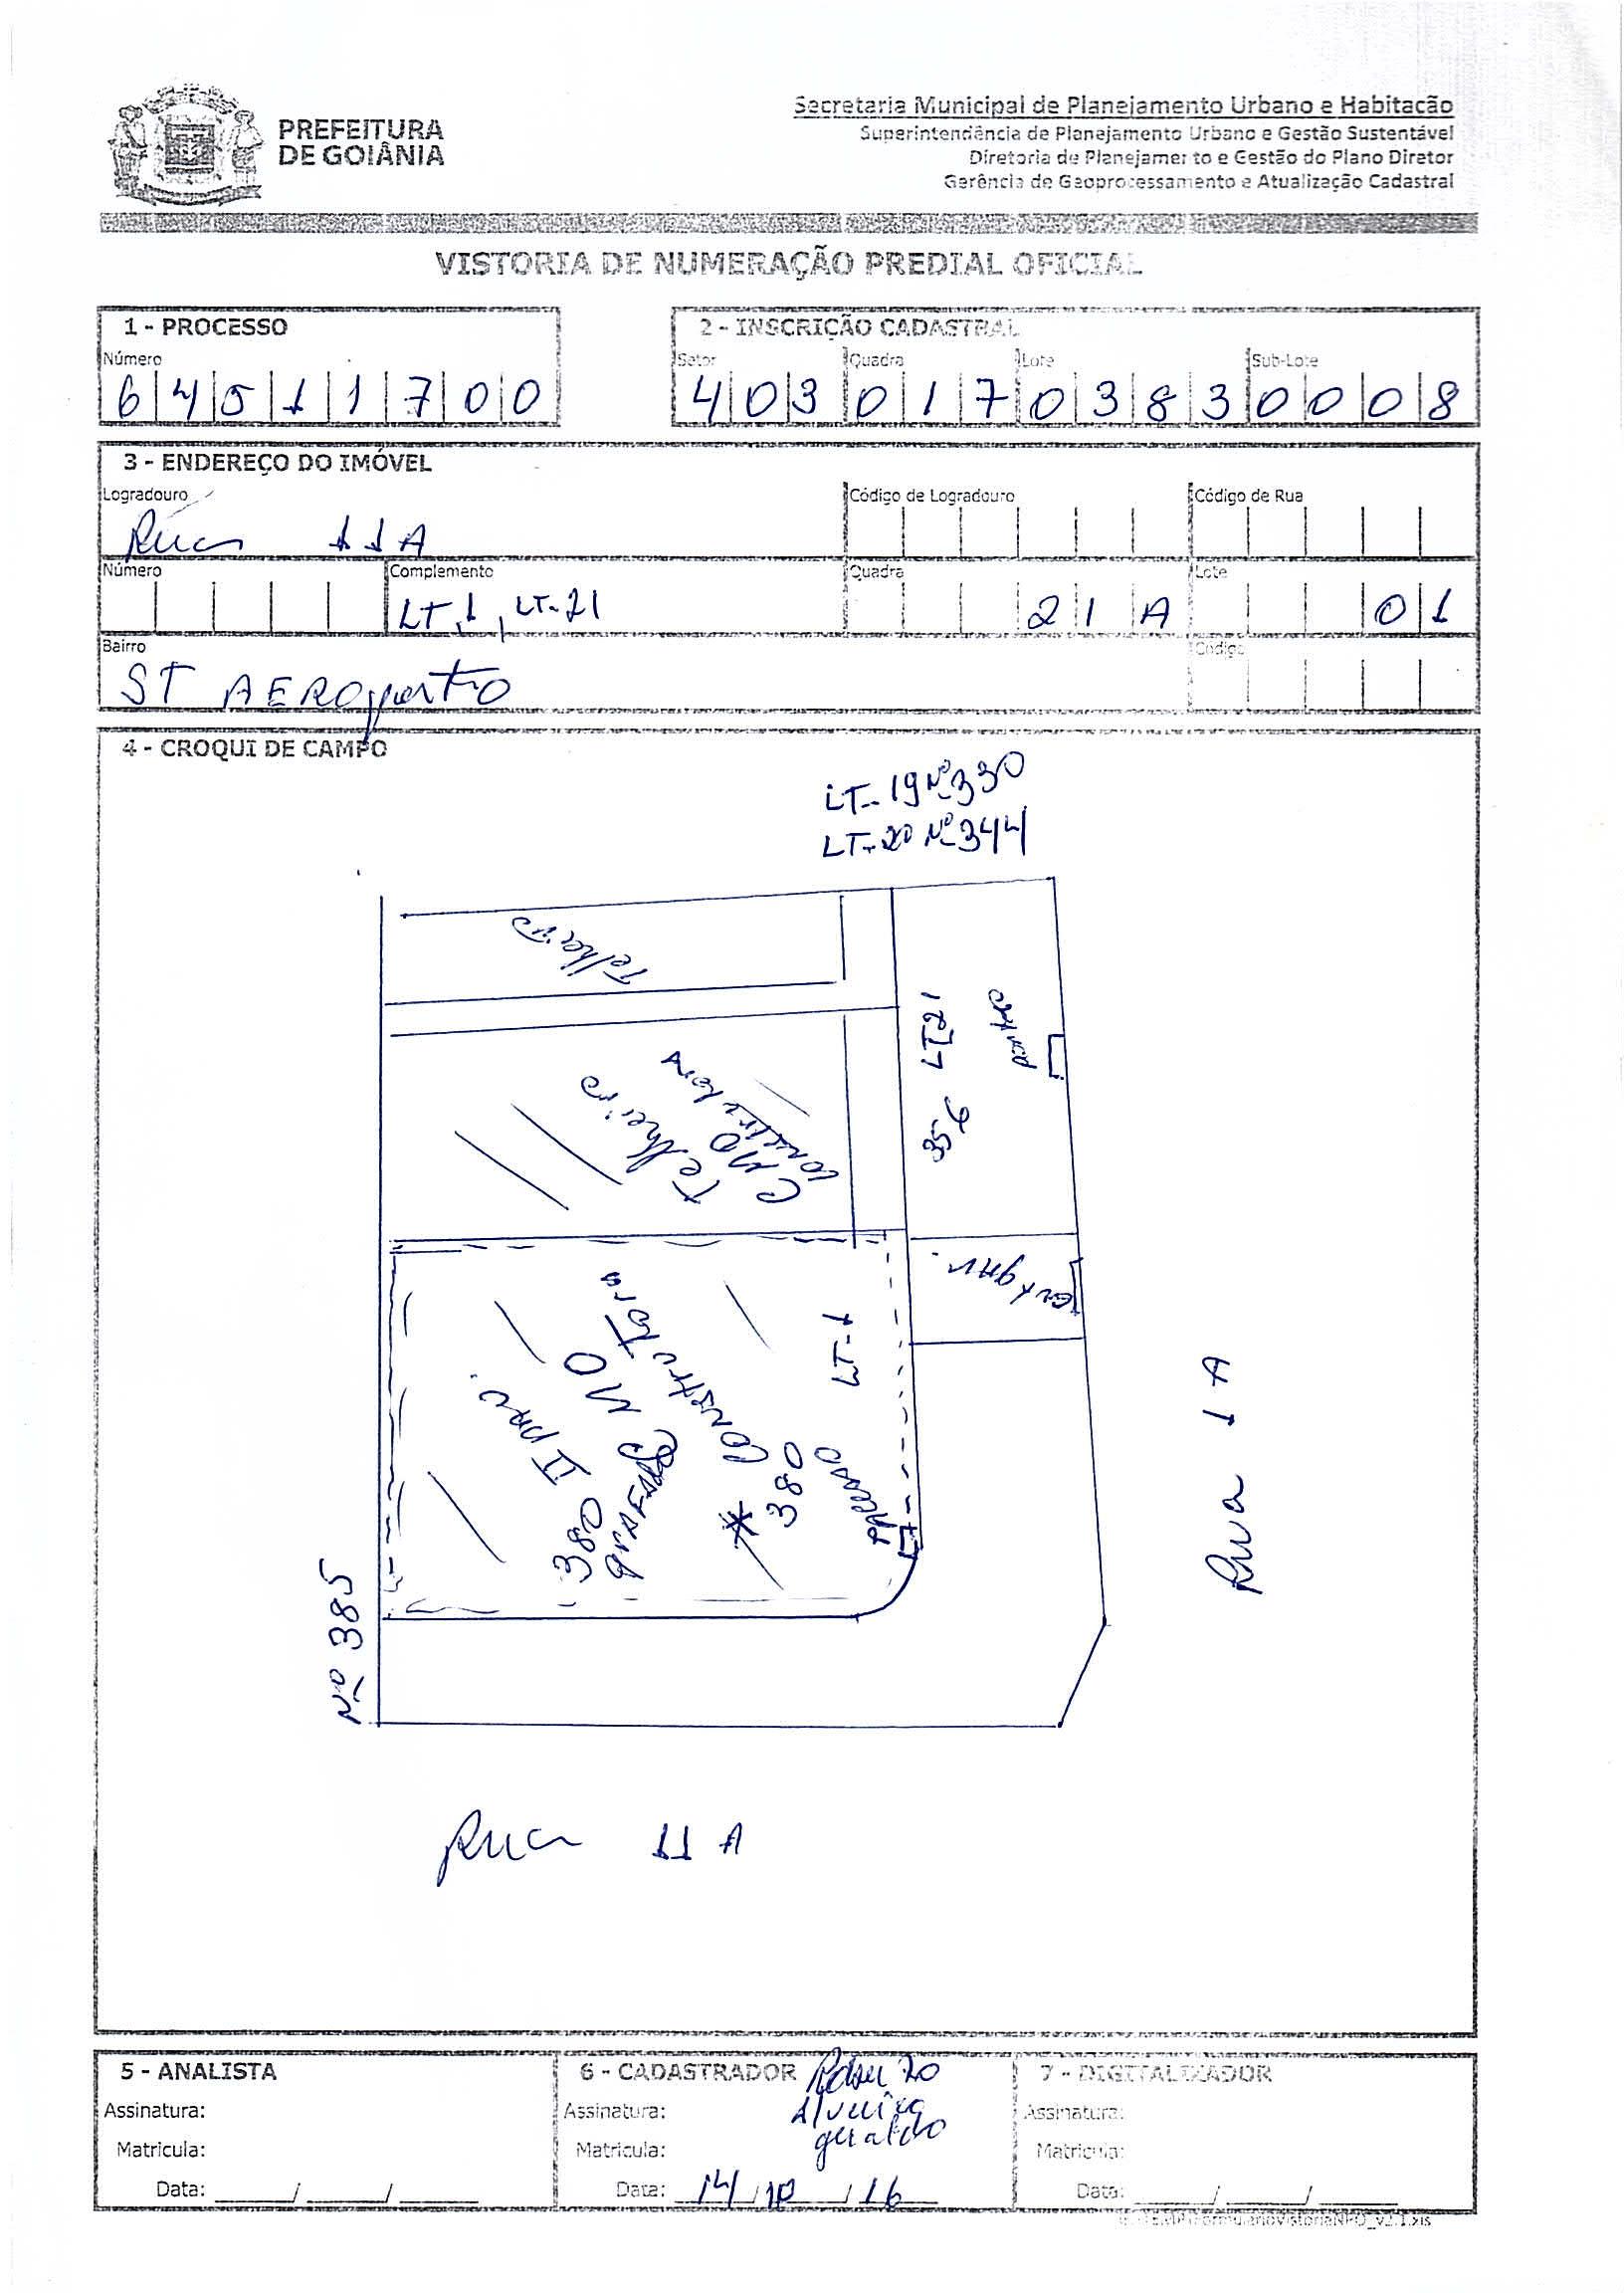 PREFEITURA
DE GOIÂNIA
Secretaria Municipal de Planejamento Urbano e Habitação
Superintendência de Planejamento Urbano e Gestão Sustentável
Diretoria de Planejamento e Gestão do Plano Diretor
Gerência de Geoprocessamento e Atualização Cadastral
VISTORIA DE NUMERAÇÃO PREDIAL OFICIAL
1 - PROCESSO
Número
6 4 5 1 1 7 0 0
2 - INSCRIÇÃO CADASTRAL
Setor Quadra Lote Sub-Lote
4 0 3 0 1 7 0 3 8 3 0 0 0 8
3 - ENDEREÇO DO IMÓVEL
Logradouro Código de Logradouro Código de Rua
Rua 11A
Número Complemento Quadra Lote
LT.1, LT-21 2 1 A 0 1
Bairro Código
ST AEROporto
4 - CROQUI DE CAMPO
LT-19 Nº 330
LT-20 Nº 344
Telheiro
LT21
356
Telheiro
CMO
Construtora
LT-1
380 II pav.
CMO
Construtora
* 380
Nº 385
Rua 1 A
Rua 11 A
5 - ANALISTA
Assinatura:
Matricula:
Data: ____/____/____
6 - CADASTRADOR
Assinatura:
geraldo
Matricula:
Data: 14/10/16
7 - DIGITALIZADOR
Assinatura:
Matricula:
Data: ____/____/____